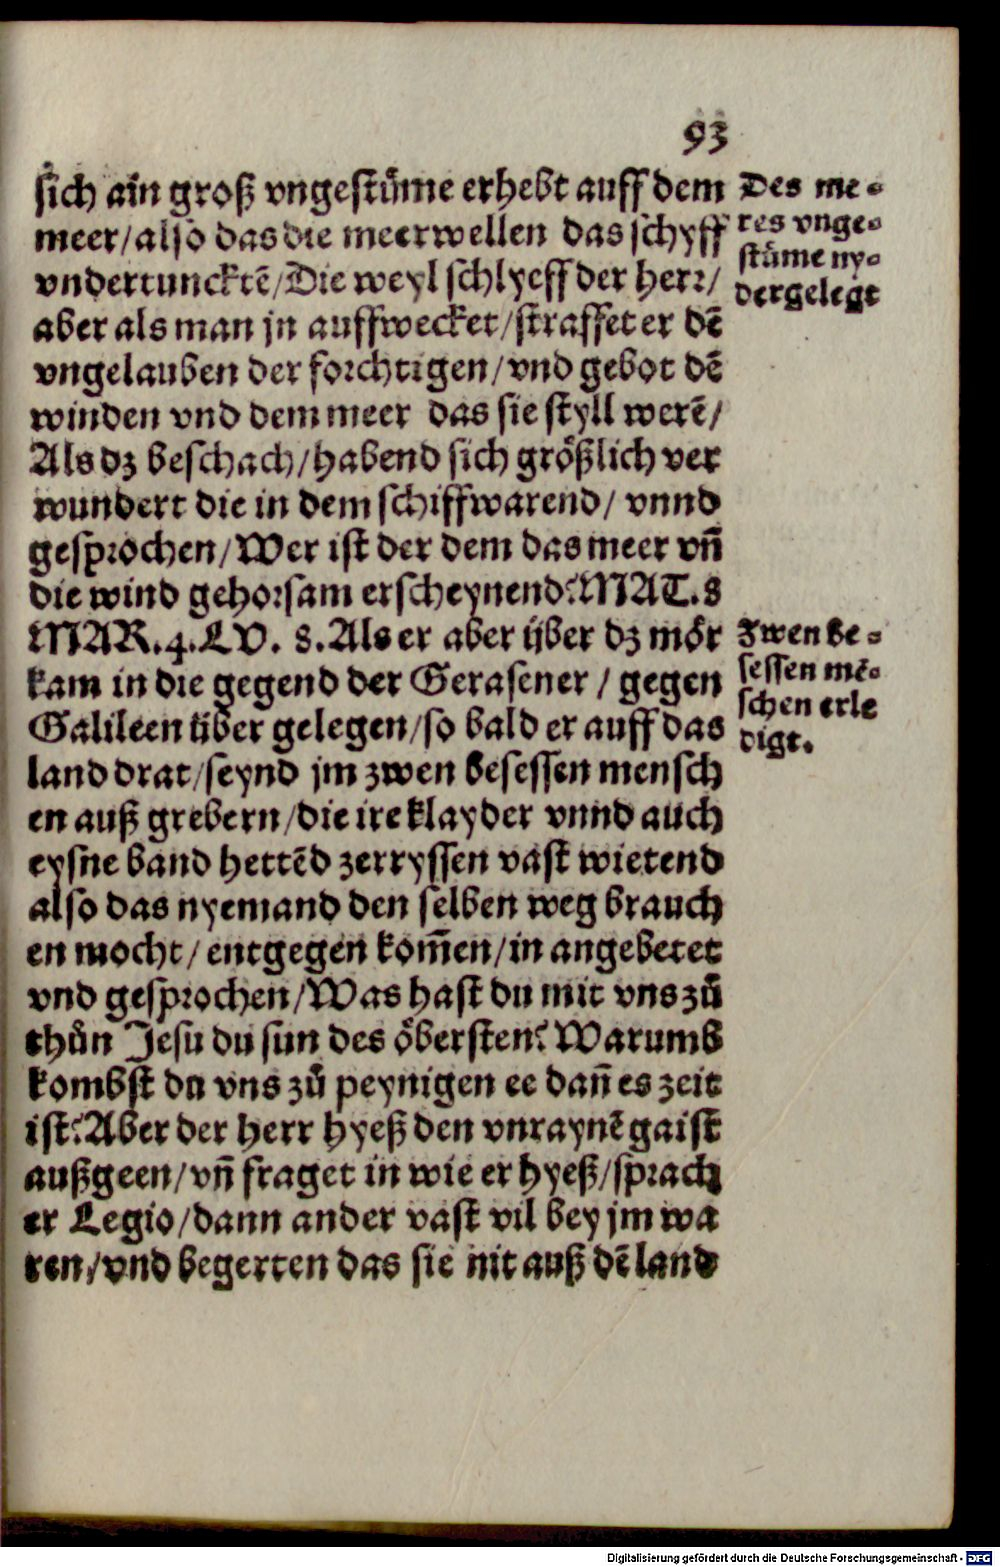 93
sich ain groß vngestůme erhebt auff dem
meer/also das die meerwellen das schyff
vndertuncktē/Die weyl schlyeff der herr/
aber als man jn auffwecket/straffet er dē
vngelauben der forchtigen/vnd gebot dē
winden vnd dem meer das sie styll werē/
Als dz beschach/habend sich größlich ver
wundert die in dem schiff warend/ vnnd
gesprochen/Wer ist der dem das meer vñ
die wind gehorsam erscheynend?MAT.8
MAR.4.LV. 8.Als er aber über dz mör
kam in die gegend der Gerasener / gegen
Galileen über gelegen/so bald er auff das
land drat/seynd jm zwen besessen mensch
en auß grebern/die ire klayder vnnd auch
eysne band hettēd zerryssen vast wietend
also das nyemand den selben weg brauch
en mocht/ entgegen kom̄en/in angebetet
vnd gesprochen/Was hast du mit vns zů
thůn Jesu du sun des öbersten? Warumb
kombst du vns zů peynigen ee dañ es zeit
ist?Aber der herr hyeß den vnraynē gaist
außgeen/vñ fraget in wie er hyeß/sprach
er Legio/dann ander vast vil bey jm wa
ren/vnd begerten das sie nit auß dē land
Des me-
res vnge-
stůme ny-
dergelegt
Zwen be-
sessen mē-
schen erle
digt.
Digitalisierung gefördert durch die Deutsche Forschungsgemeinschaft - DFG